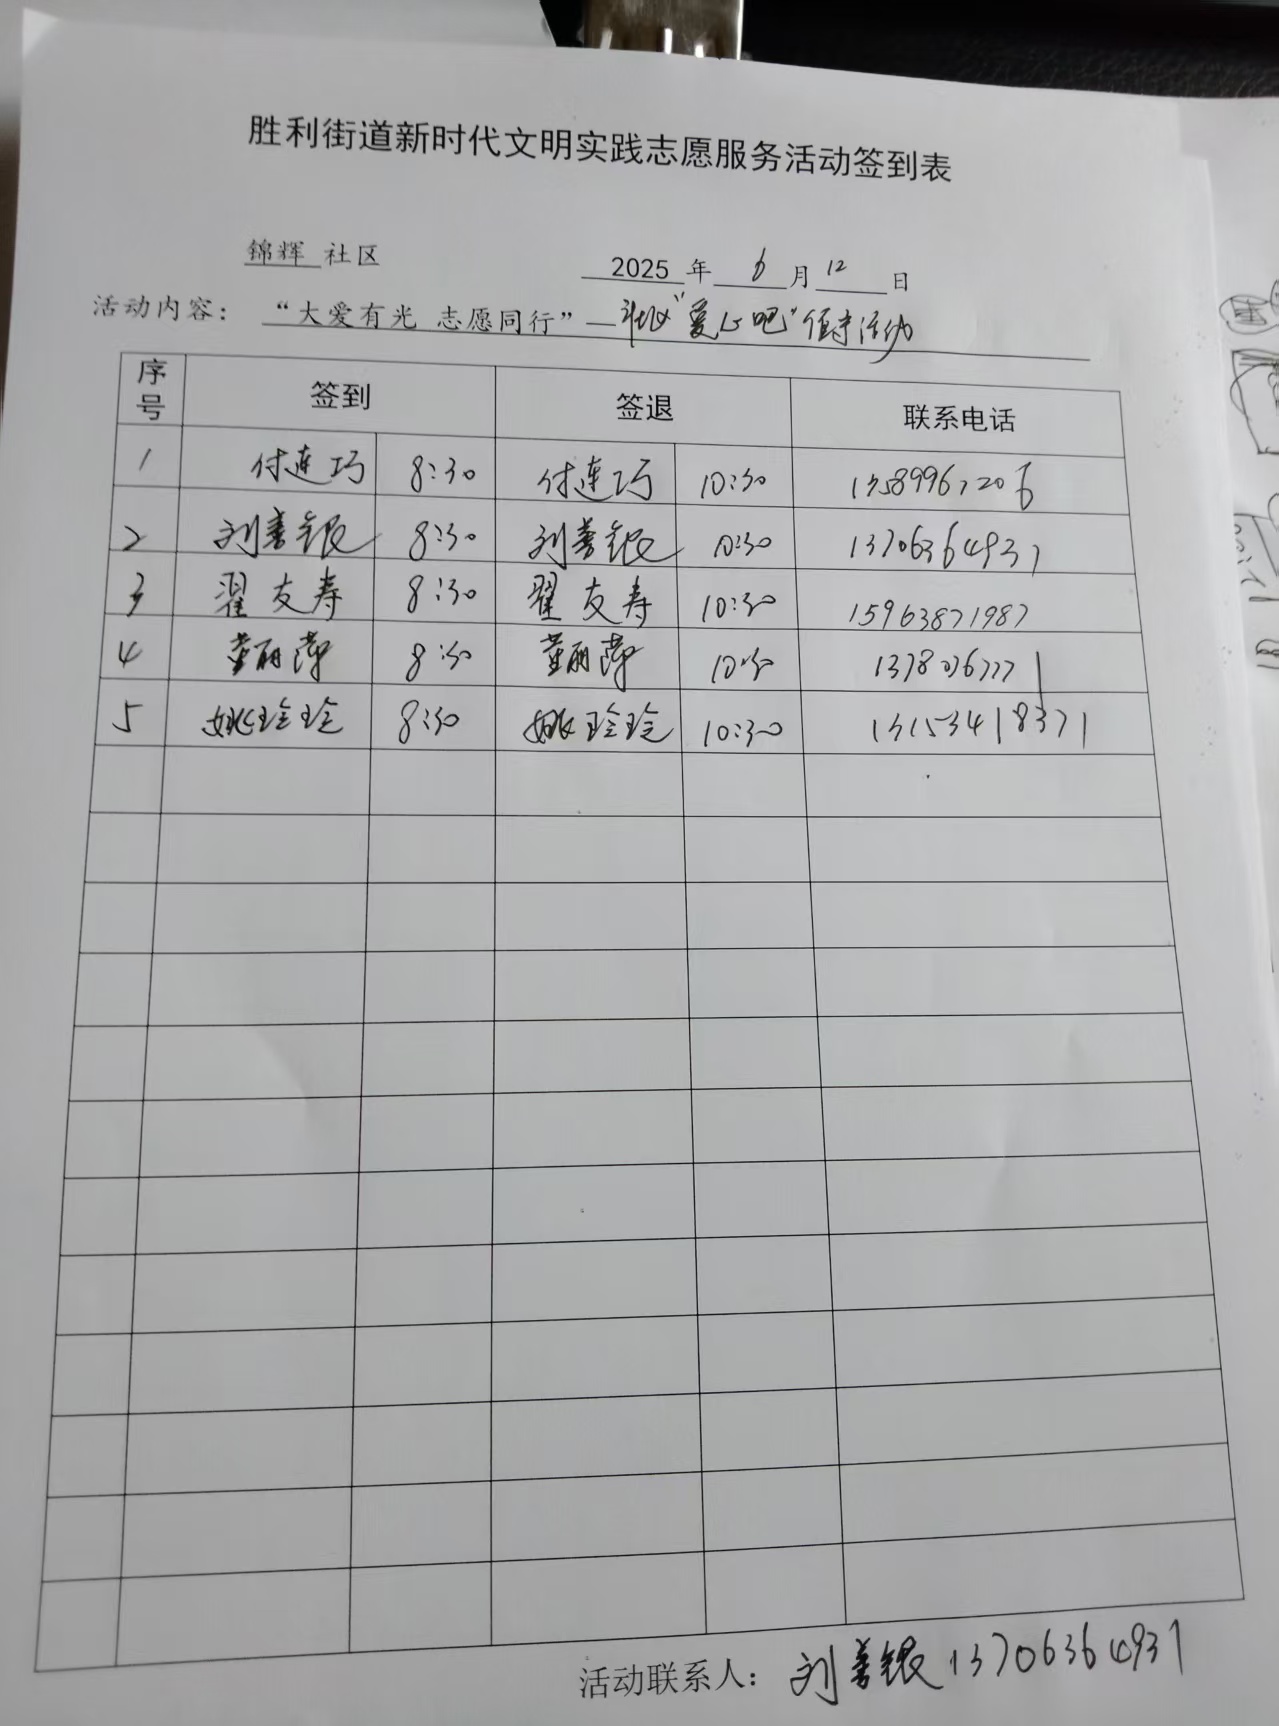 胜利街道新时代文明实践志愿服务活动签到表
锦辉 社区 2025 年 6 月 12 日
活动内容： “大爱有光 志愿同行”—社区“爱心吧”值守活动
序号 签到 签退 联系电话
1 付连巧 8:30 付连巧 10:30 13589967206
2 刘善银 8:30 刘善银 10:30 13706364931
3 翟友寿 8:30 翟友寿 10:30 15963871987
4 董丽萍 8:30 董丽萍 10:30
5 姚玲玲 8:30 姚玲玲 10:30 13153418371
活动联系人： 刘善银 13706364931